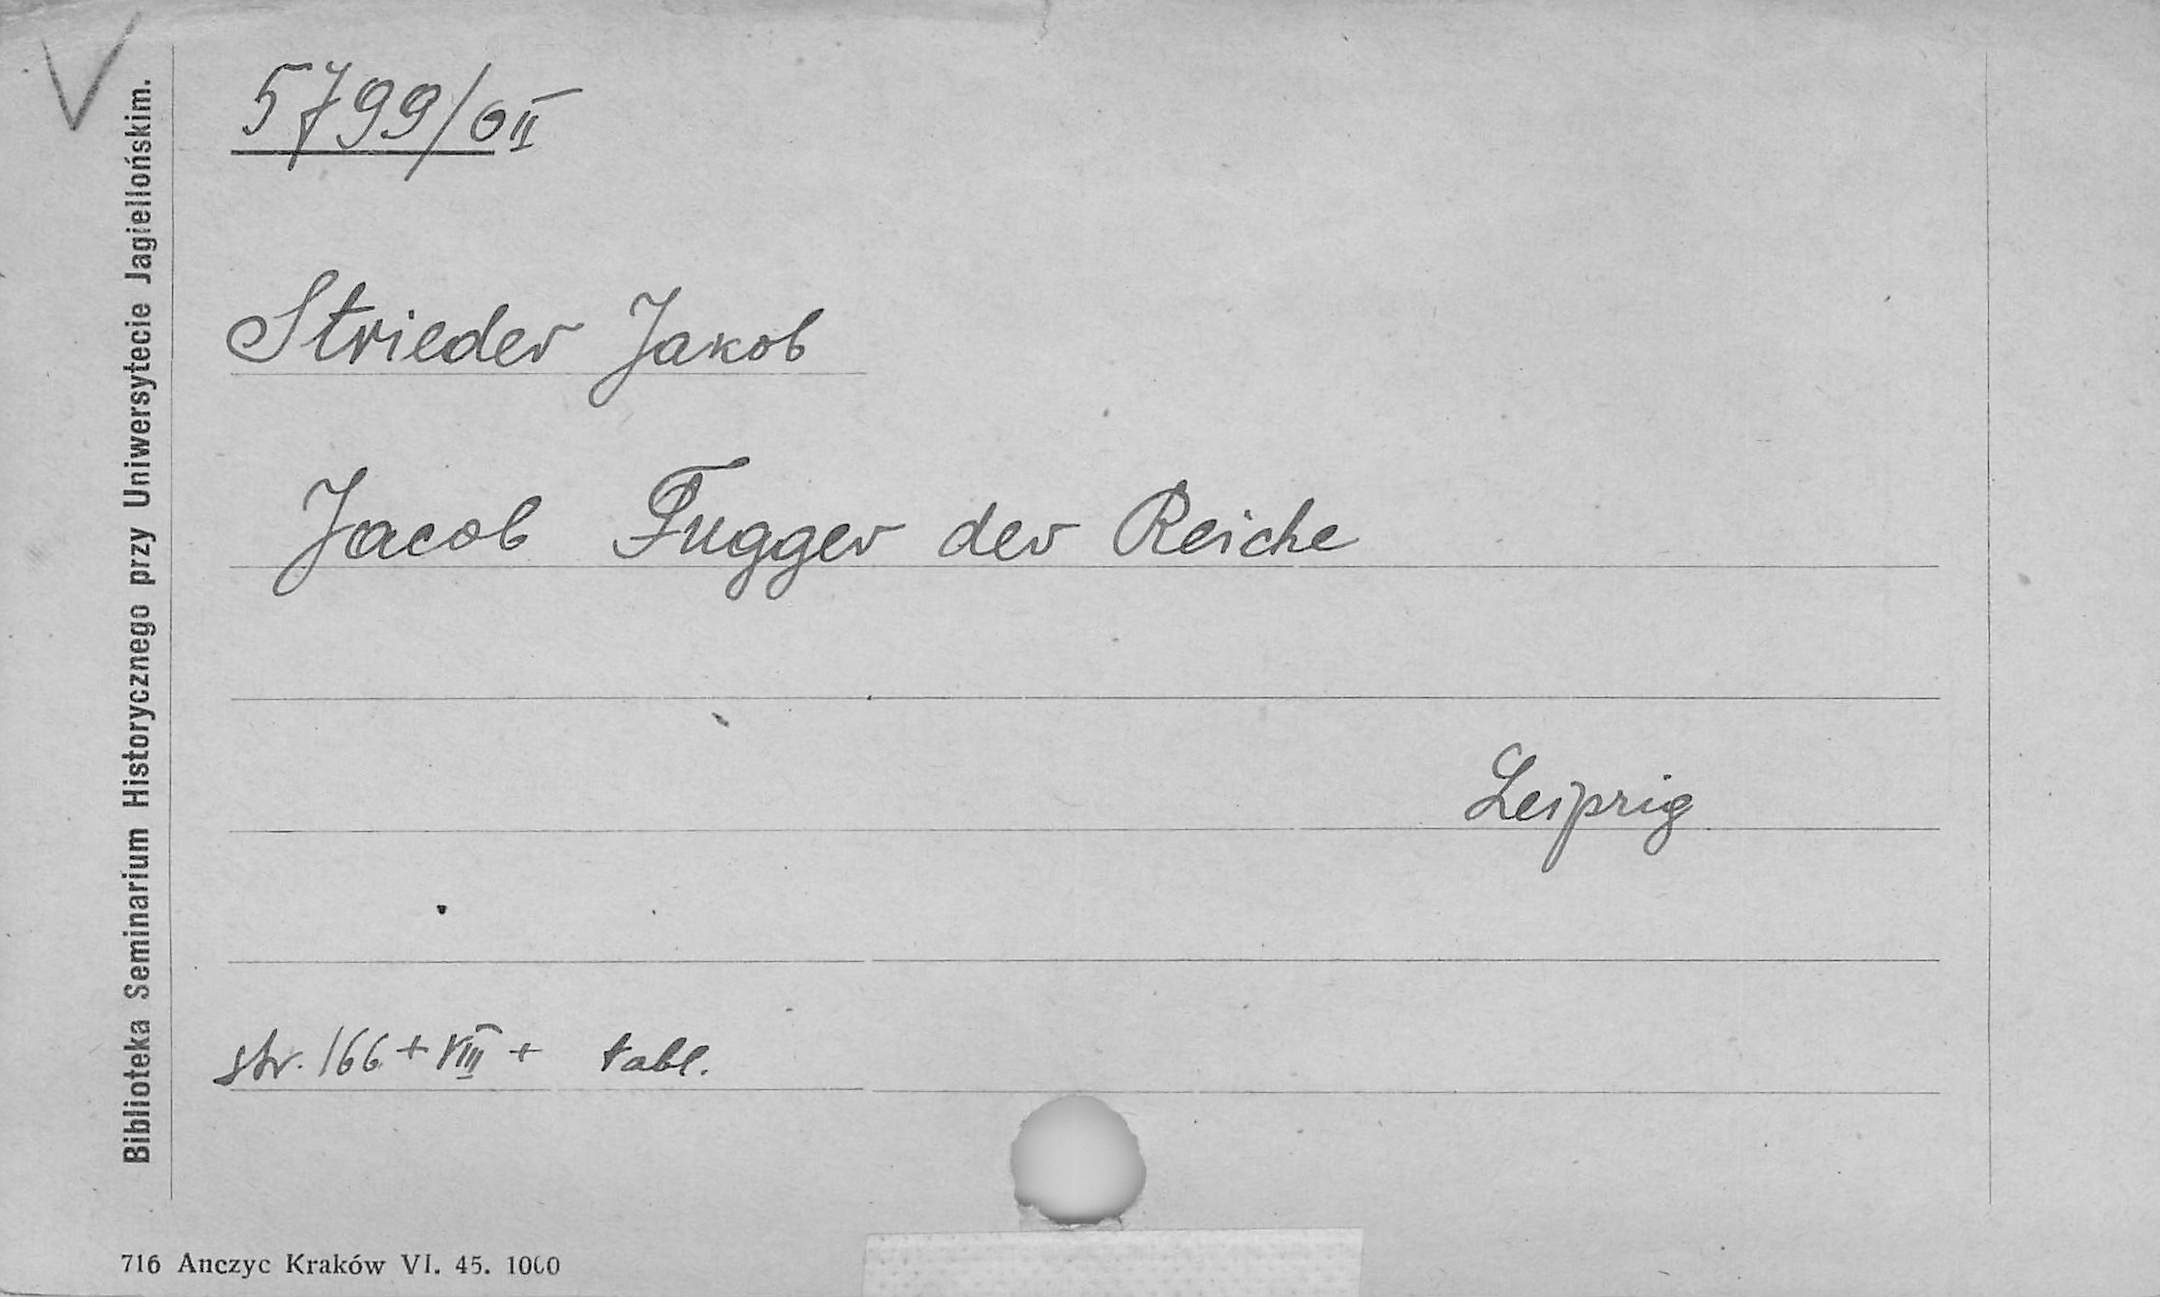 5799/6II
Strieder Jakob
Jacob Fugger der Reiche
Leipzig
str. 166 + VIII + tabl.
Biblioteka Seminarium Historycznego przy Uniwersytecie Jagiellońskim.
716 Anczyc Kraków VI. 45. 1000